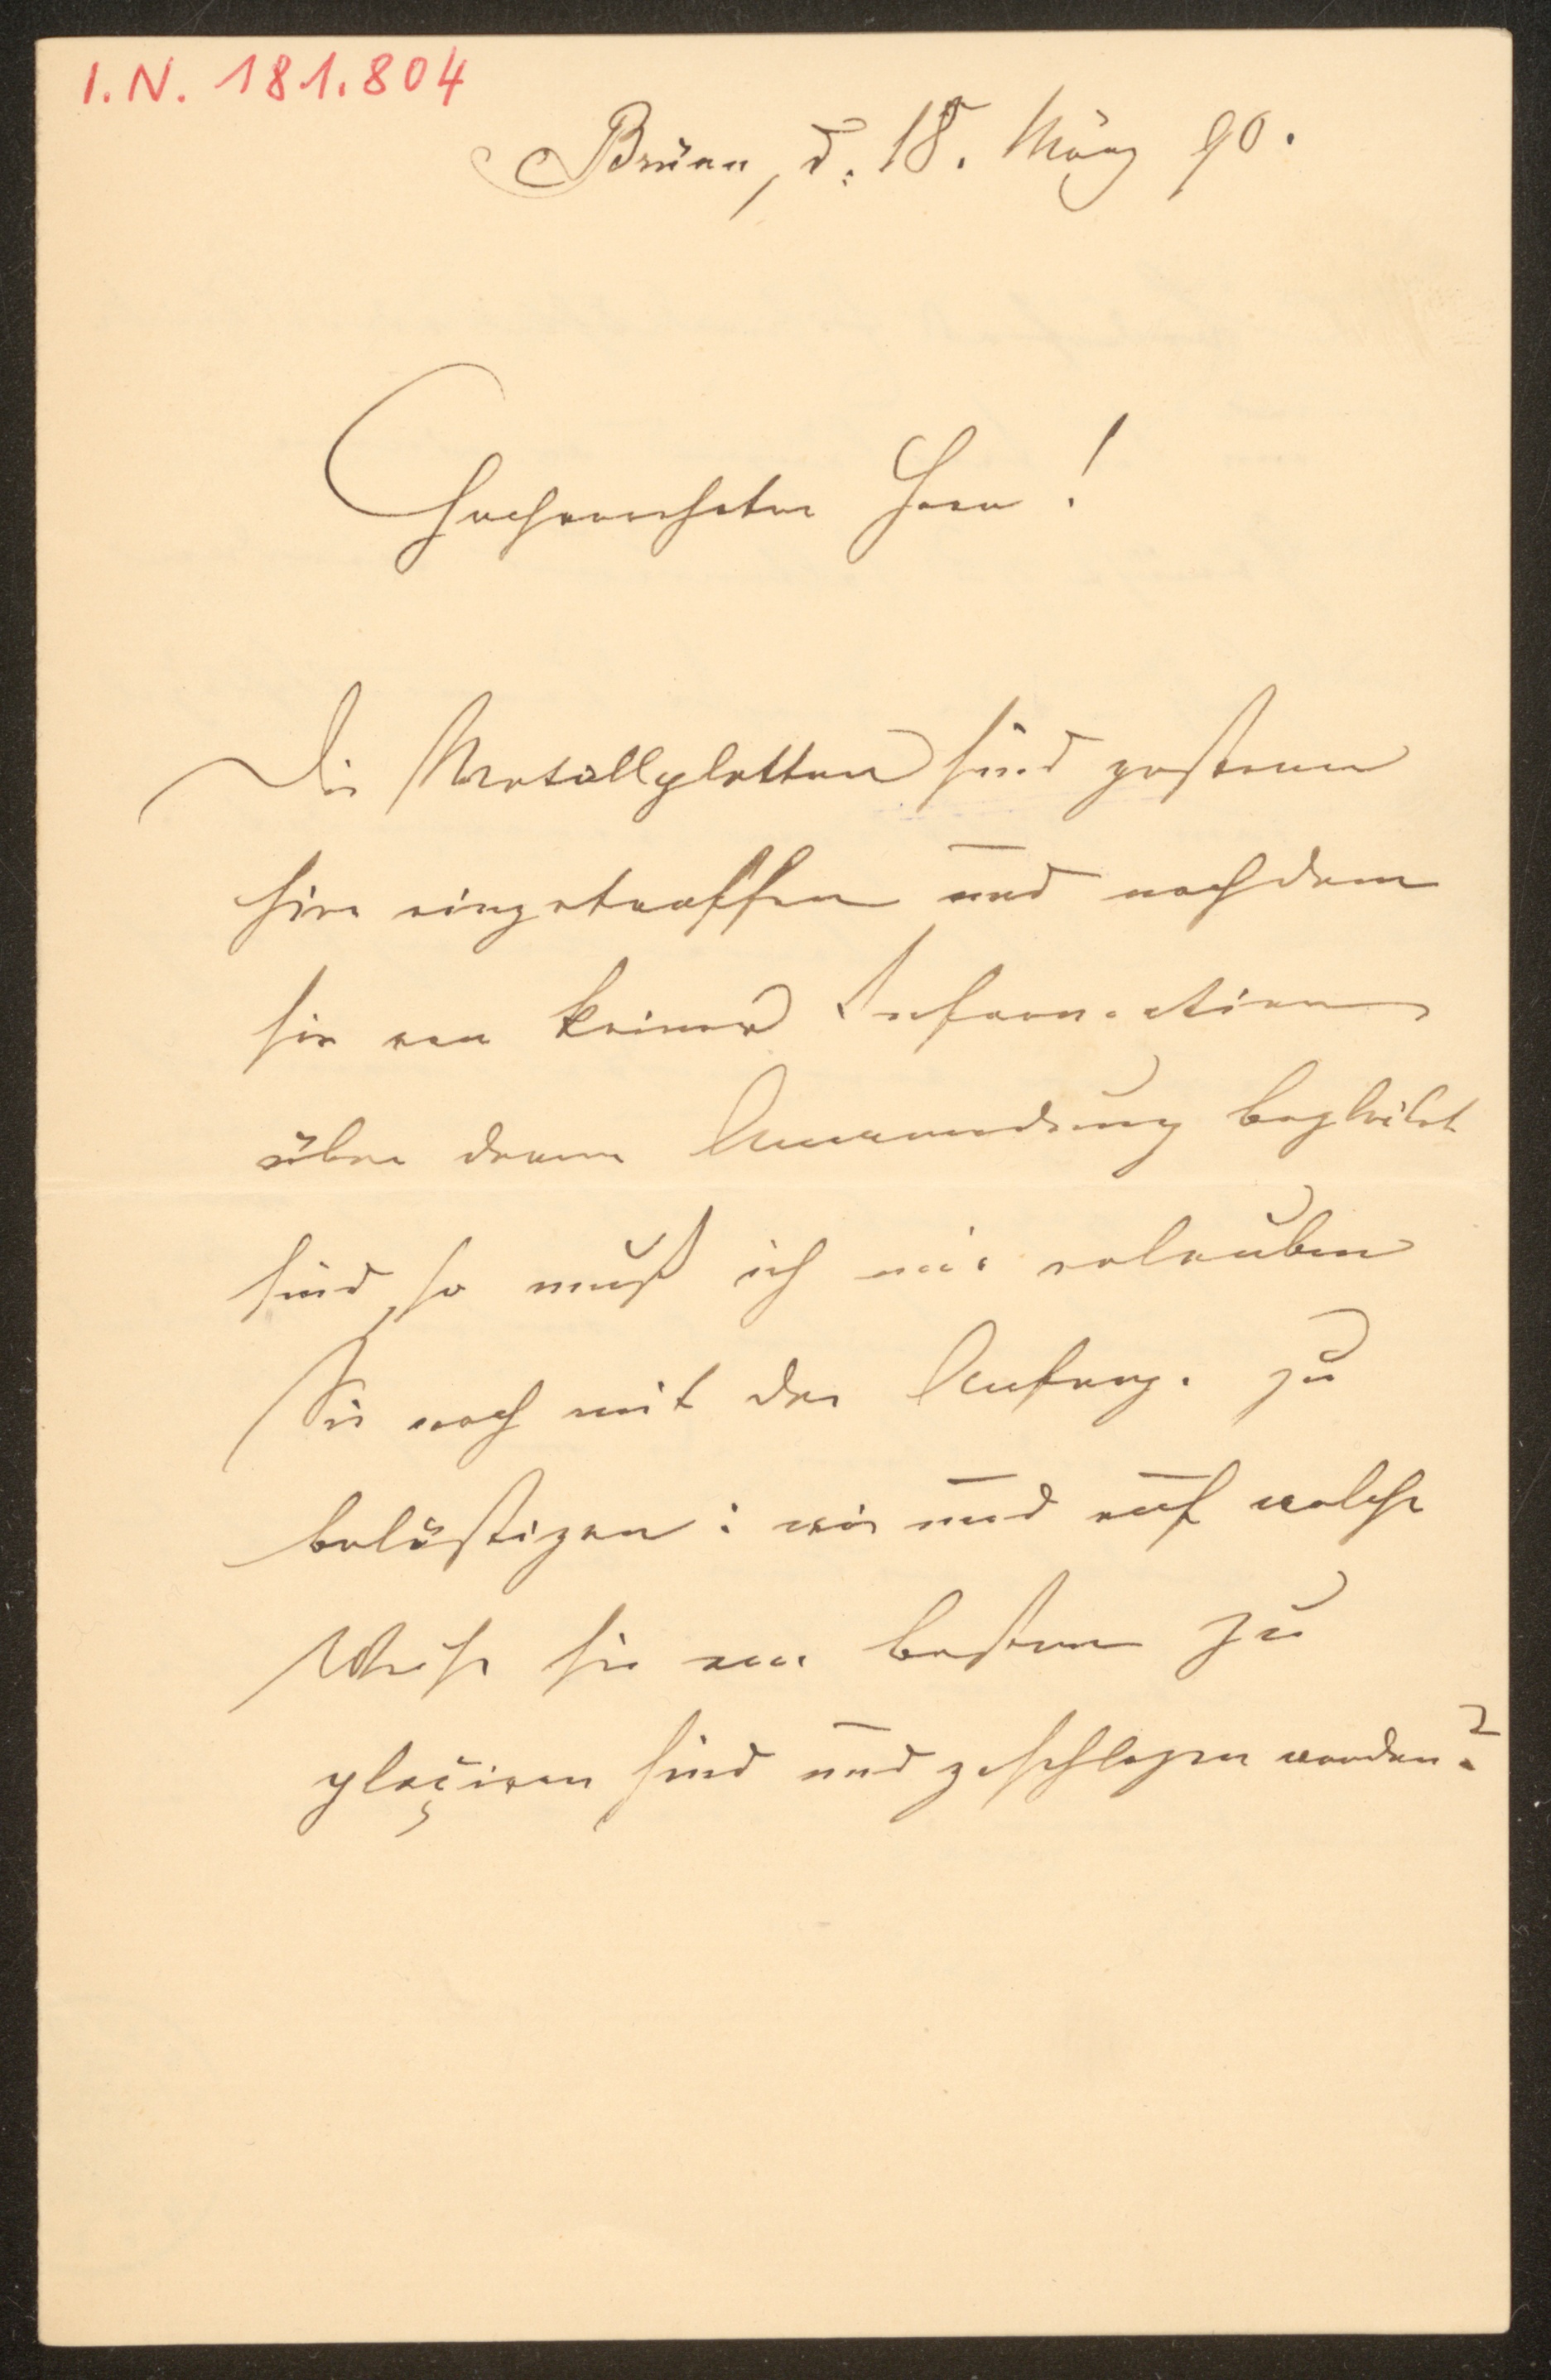 I.N. 181.804
Brünn, d. 18. März 90.
Hochverehrter Herr!
Die Metallplatten sind gestern
hier eingetroffen und nachdem
sie von keiner Information
über deren Anwendung begleitet
sind, so muß ich mir erlauben
Sie noch mit der Anfrage zu
belästigen: wie und auf welche
Weise sie am besten zu
plaçiren sind und geschlagen werden?